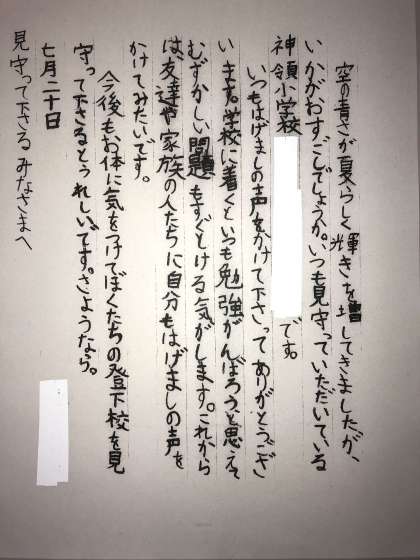 空の青さが夏らしく輝きを増してきましたが、
いかがおすごしでしょうか。いつも見守っていただいている
神領小学校
です。
いつもはげましの声をかけて下さってありがとうござ
います。学校に着くといつも勉強がんばろうと思えて
むずかしい問題もすぐとける気がします。これから
は友達や家族の人たちに自分もはげましの声を
かけてみたいです。
今後もお体に気をつけてぼくたちの登下校を見
守って下さるとうれしいです。さようなら。
七月二十日
見守って下さるみなさまへ